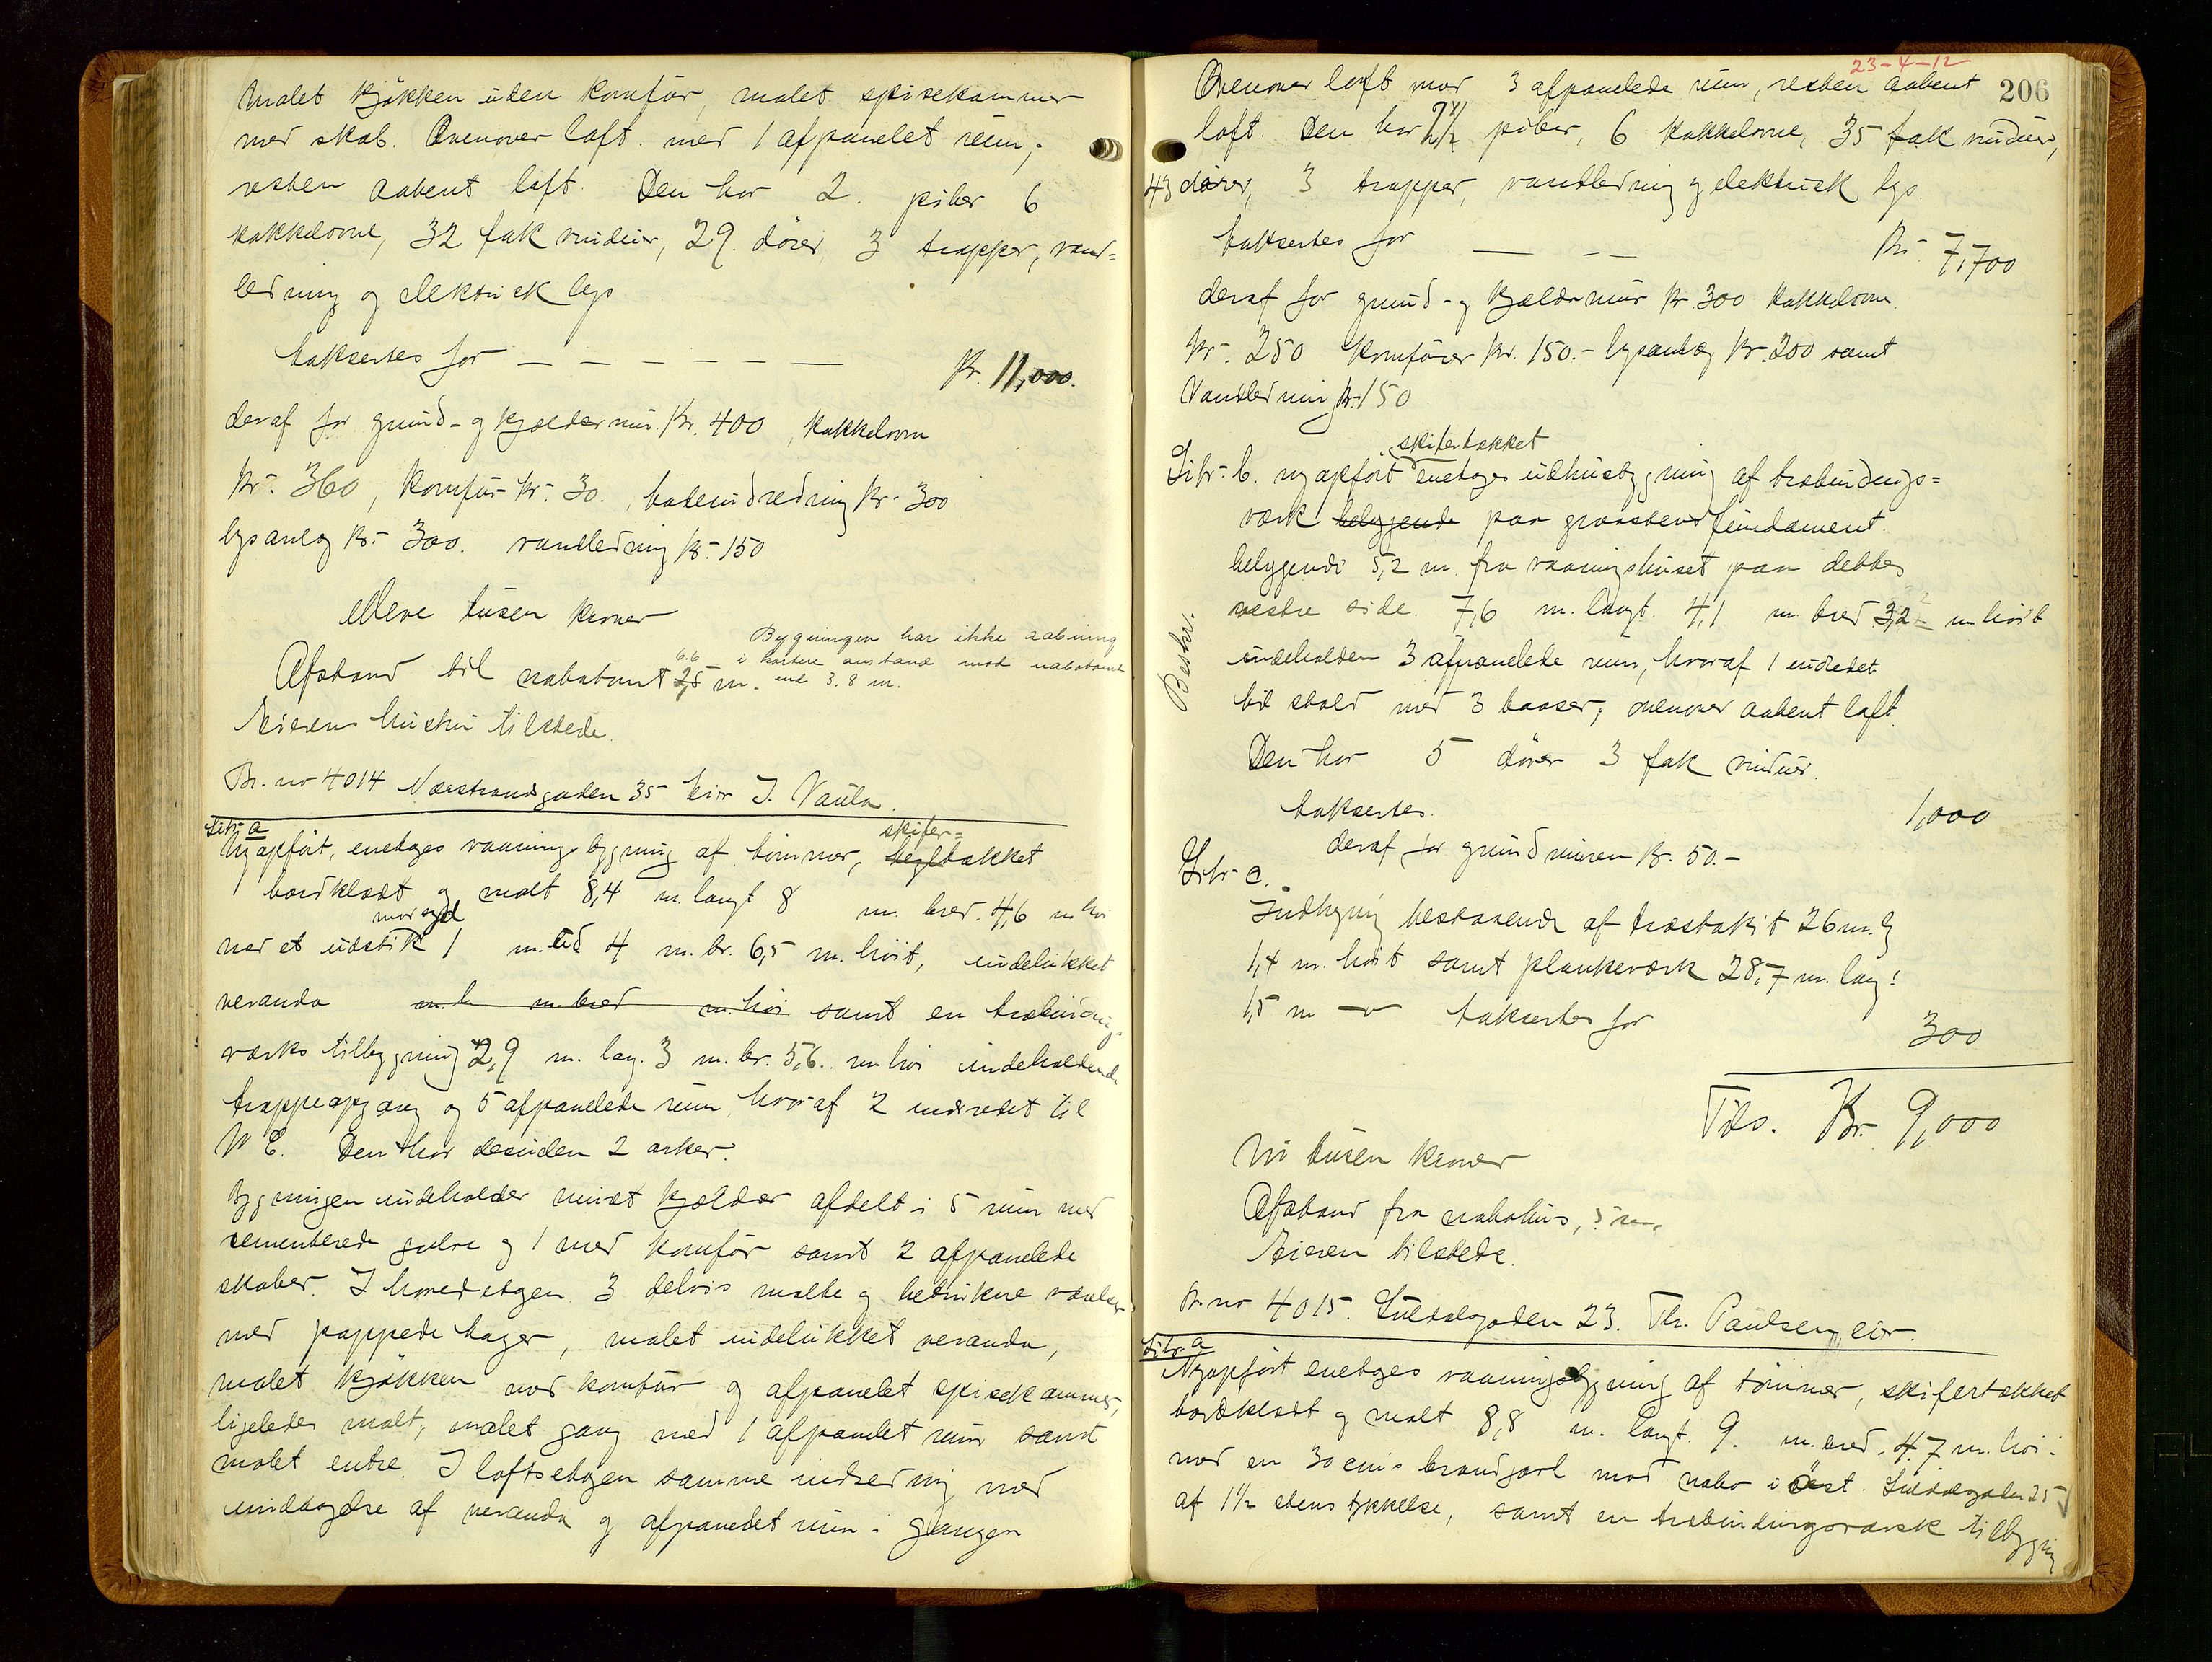 malet kjøkken uden komfür, malet spisekammer
med skab. Ovenover loft med 1 afpanelet rüm,
resten aabent loft. Den har 2. piber 6
kakkelovne, 32 fak vindüer, 29. dører, 3 trapper, vand=
ledning og elektrisk lys
taksertes for — — — — — — Kr. 11,000.
deraf for gründ- og kjældermür. Kr. 400, kakkelovn
Kr. 360, komfür Kr. 30. badeindredning Kr. 300
lysanlæg Kr. 300. vandledning Kr. 150
elleve tüsen kroner
Bygningen har ikke aabning
Afstand til nabotomt 6.6 m. i kortere avstand mod nabotomt
end 3.8 m.
Eierens hüstrü tilstede.
Br. no 4014 Nærstrandsgaden 35 eier J. Vaula.
Litr. a
Nyopført, enetages vaaningsbygning af tømmer, skifer=tækket
bordklædt og malt 8,4 m. langt 8 m. bred. 4,6 m høi
med et üdstik mod syd 1 m. üd 4 m. br. 6,5 m. høit, indelükket
veranda m. l. m. bred m. høi samt en træbindings
værks tilbygning 2,9 m. lang. 3 m. br. 5,6. m. høi indeholdende
trappeopgang og 5 afpanelede rüm, hvoraf 2 indredet til
W C. Den har desüden 2 arker.
Bygningen indeholder müret kjælder afdelt i 5 rüm med
cementerede gülve og 1 med komfür samt 2 afpanelede
skaber. I hovedetagen 3 delvis malte og betrükne værelser
med pappede tager, malet indelükket veranda,
malet kjøkken med komfür og afpanelet spisekammer,
ligeledes malt, malet gang med 1 afpanelet rüm samt
malet entre. I loftsetagen samme indredning med
undtagelse af veranda og afpanelet rüm i gangen
23-4-12
206
Ovenover loft med 3 afpanelede rüm, resten aabent
loft. Den har 2½ piber, 6 kakkelovne, 35 fak vindüer,
43 dører, 3 trapper, vandledning og elektrisk lys.
taksertes for — — — Kr. 7,700
deraf for gründ- og kjældermür Kr. 300 kakkelovne
Kr. 250 komfürer Kr. 150.- lysanlæg Kr. 200 samt
Vandledning Kr. 150
skifertækket
Litr. b. nyopført enetages üdhüsbygning af træbindings=
værk belyggende paa graastensfündament
belygende 5,2 m. fra vaaningshüset paa dettes
vestre side. 7,6 m. langt. 4,1 m. bred 3,2 m høit
indeholder 3 afpanelede rüm, hvoraf 1 indredet
til stald med 3 baaser, ovenover aabent loft.
Den har 5 dører 3 fak vindüer.
taksertes. 1,000
deraf for gründmüren Kr. 50.-
Litr. c.
Indhegning bestaaende af træstakit 26 m. l
1,4 m. høit samt plankeværk 28,7 m. lang:
1,5 m — taksertes for 300
Tils. Kr. 9,000
Ni tüsen kroner
Afstand fra nabohüs, 5 m.
Eieren tilstede.
Br. no 4015. Süldalsgaden 23. Th. Paulsen, eier.
Litr. a
Nyopført enetages vaaningsbygning af tømmer, skifertækket
bordklædt og malt 8,8 m. langt. 9. m. bred. 4,7 m. høi.
med en 30 cm's brandgavl mod nabo i Øst. Süldalsgaden 25
af 1½ stens tykkelse, samt en træbindingsværk tilbygning